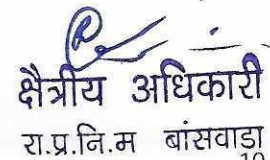 क्षैत्रीय अधिकारी
रा.प्र.नि.म बांसवाडा